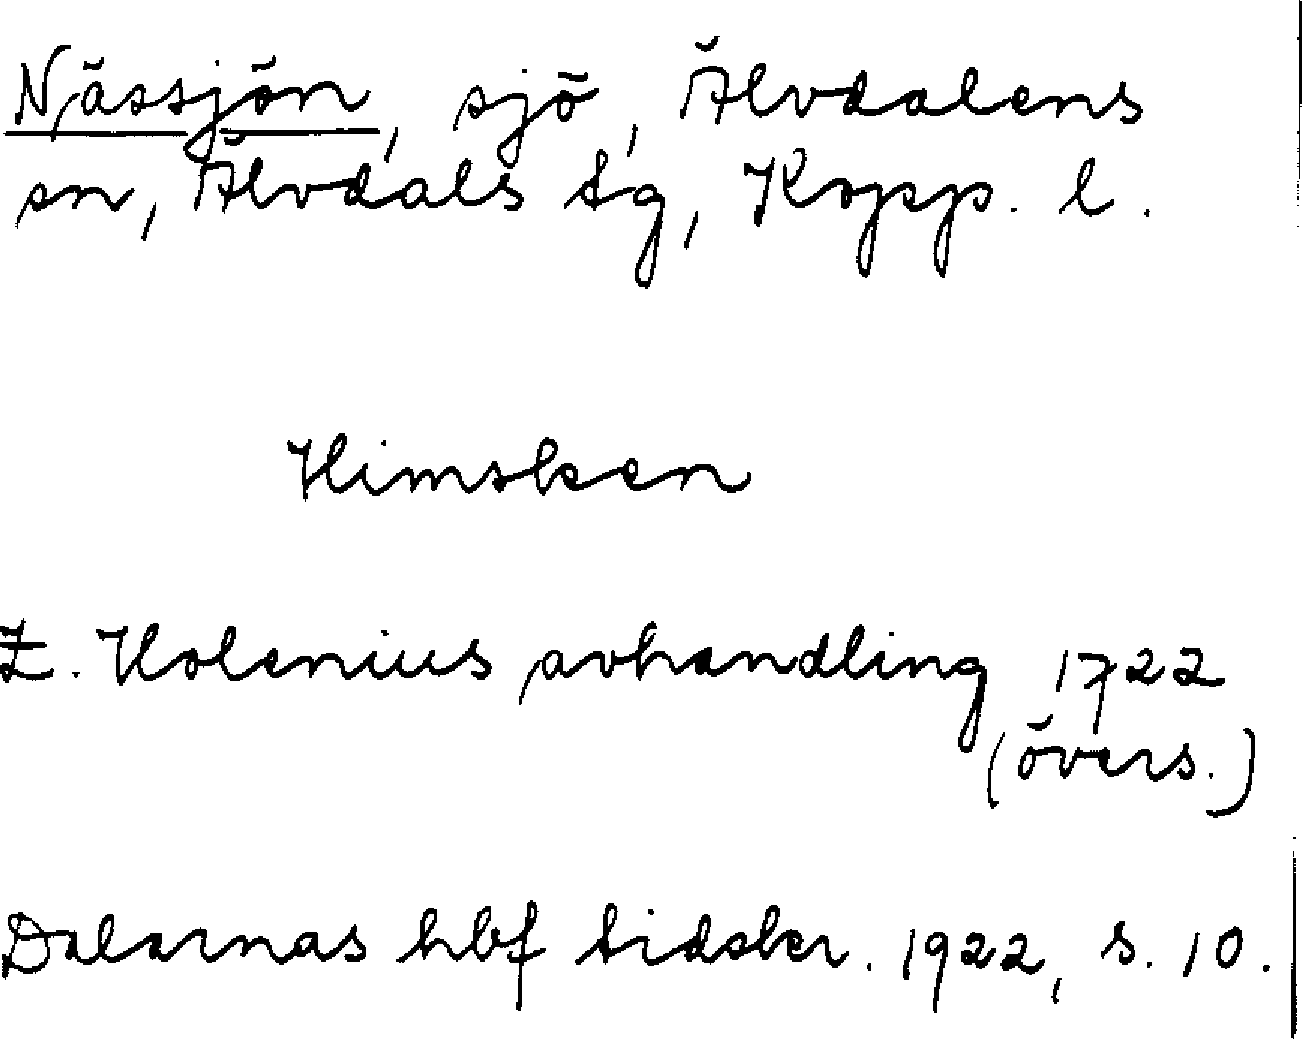 Nässjön, sjö, Älvdalens
sn, Älvdals tg, Kopp. l.
Himsken
Z. Holenius avhandling 1722
(övers.)
Dalarnas hbf tidskr. 1922, s. 10.